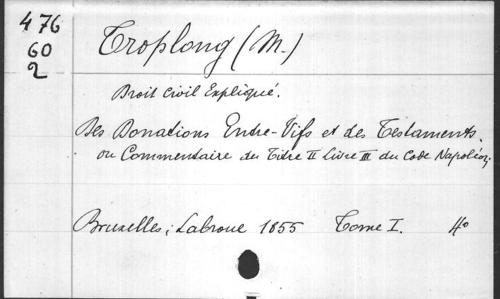 476
60
2
Troplong (M.)
Droit Civil Expliqué.
Des Donations Entre-Vifs et des Testaments.
ou Commentaire du Titre II Livre III du Code Napoléon;
Bruxelles; Labroue 1855 Tome I. 4º